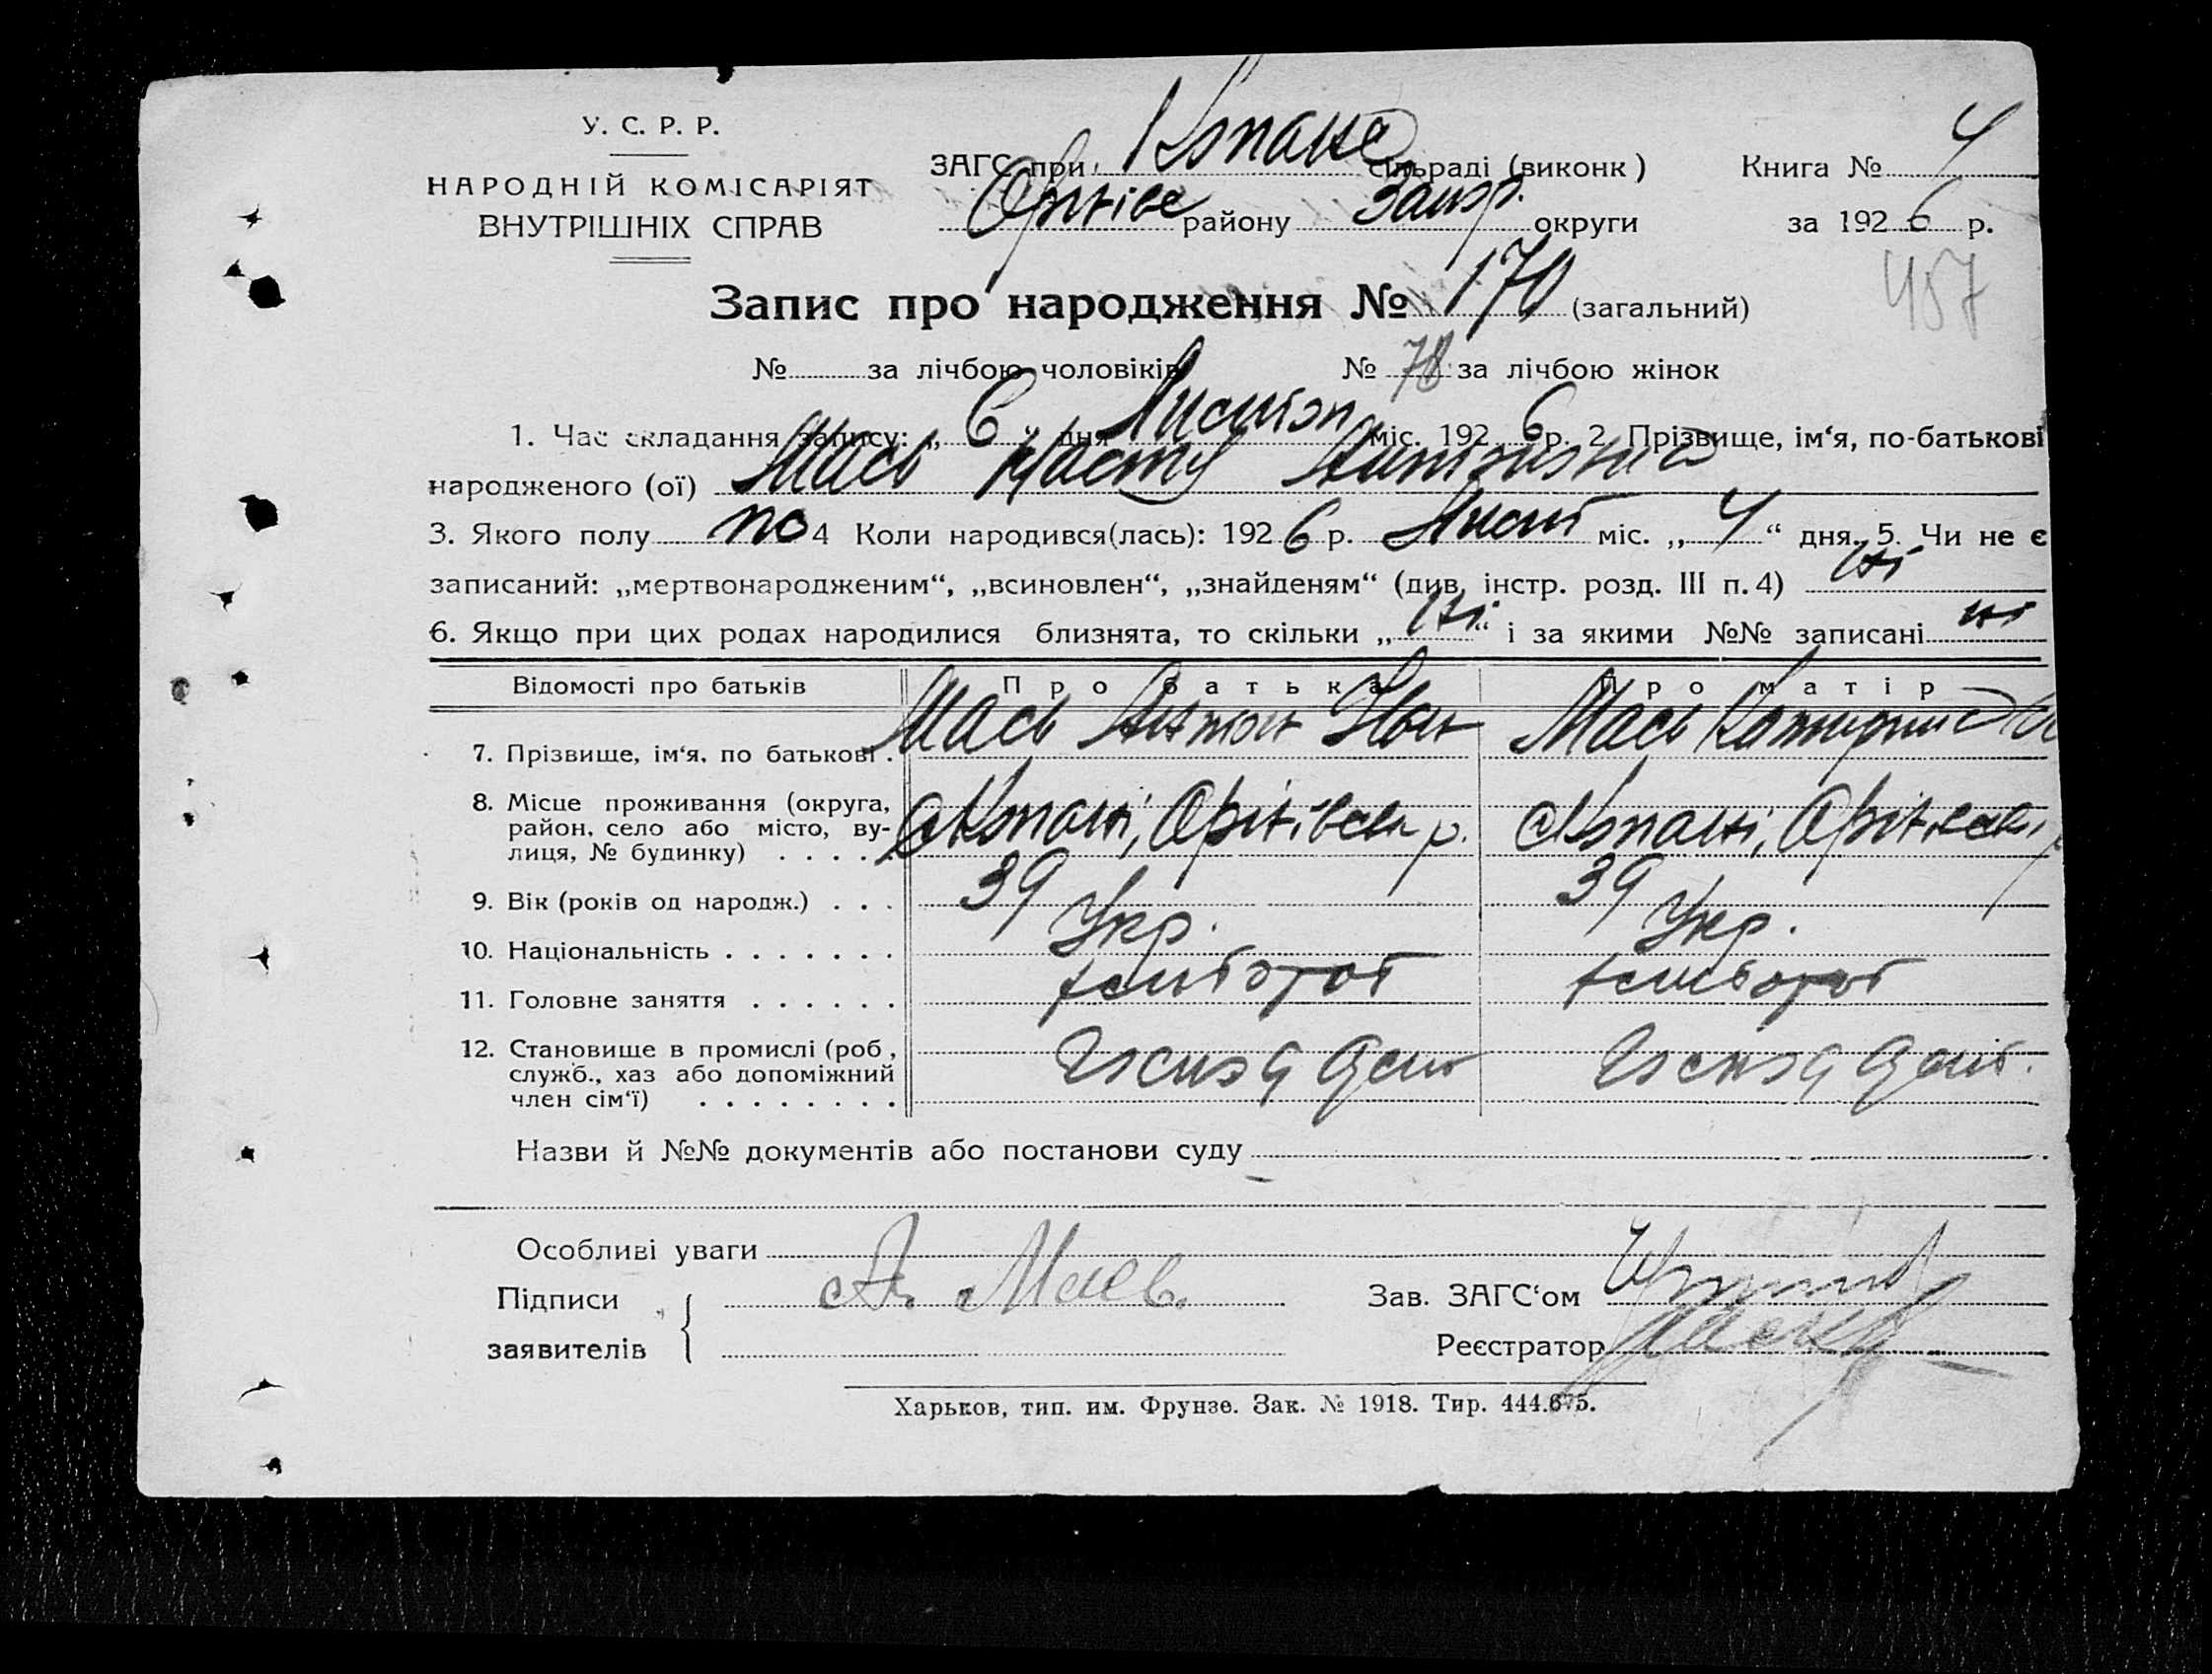 У. С. Р. Р.
НАРОДНІЙ КОМІСАРІЯТ
ВНУТРІШНІХ СПРАВ
ЗАГС при Копане сільраді (виконк)
Оріхівс району Запор. округи
Книга № 4
за 1926 р.
457
Запис про народження № 170 (загальний)
№ за лічбою чоловіків № 78 за лічбою жінок
1. Час складання запису: „ 6 “ дня Листоп міс. 1926 р. 2. Прізвище, ім‘я, по-батькові
народженого (ої) Мась Настя Антоновна
3. Якого полу 4 Коли народився(лась): 1926 р. Лист міс. „ 4 “ дня. 5. Чи не є
записаний: „мертвонародженим“, „всиновлен“, „знайденям“ (див. інстр. розд. III п. 4) ні
6. Якщо при цих родах народилися близнята, то скільки „ ні “ і за якими №№ записані ні
Відомості про батьків Про батька Про матір
7. Прізвище, ім‘я, по батькові . Мась Антон Мась Катерина
8. Місце проживання (округа, район, село або місто, вулиця, № будинку) . . . . с Копані, Оріхівськ р. с Копані, Оріхівськ р
9. Вік (років од народж.) . . . 39 39
10. Національність . . . . . . . Укр. Укр.
11. Головне заняття . . . . . . хлібороб хлібороб
12. Становище в промислі (роб, служб., хаз або допоміжний член сім‘ї) . . . . . . . .
Назви й №№ документів або постанови суду
Особливі уваги
Підписи А. Мась. Зав. ЗАГС‘ом
заявителів Реєстратор
Харьков, тип. им. Фрунзе. Зак. № 1918. Тир. 444.675.